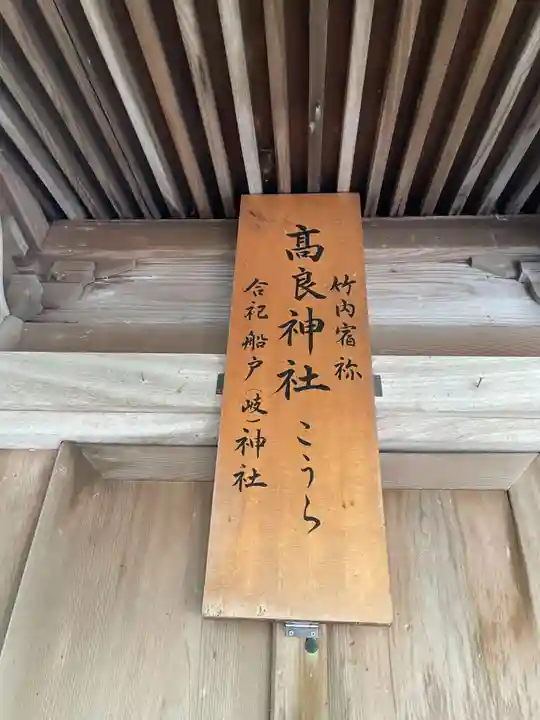 竹内宿祢
髙良神社 こうら
合祀 船戸（岐）神社